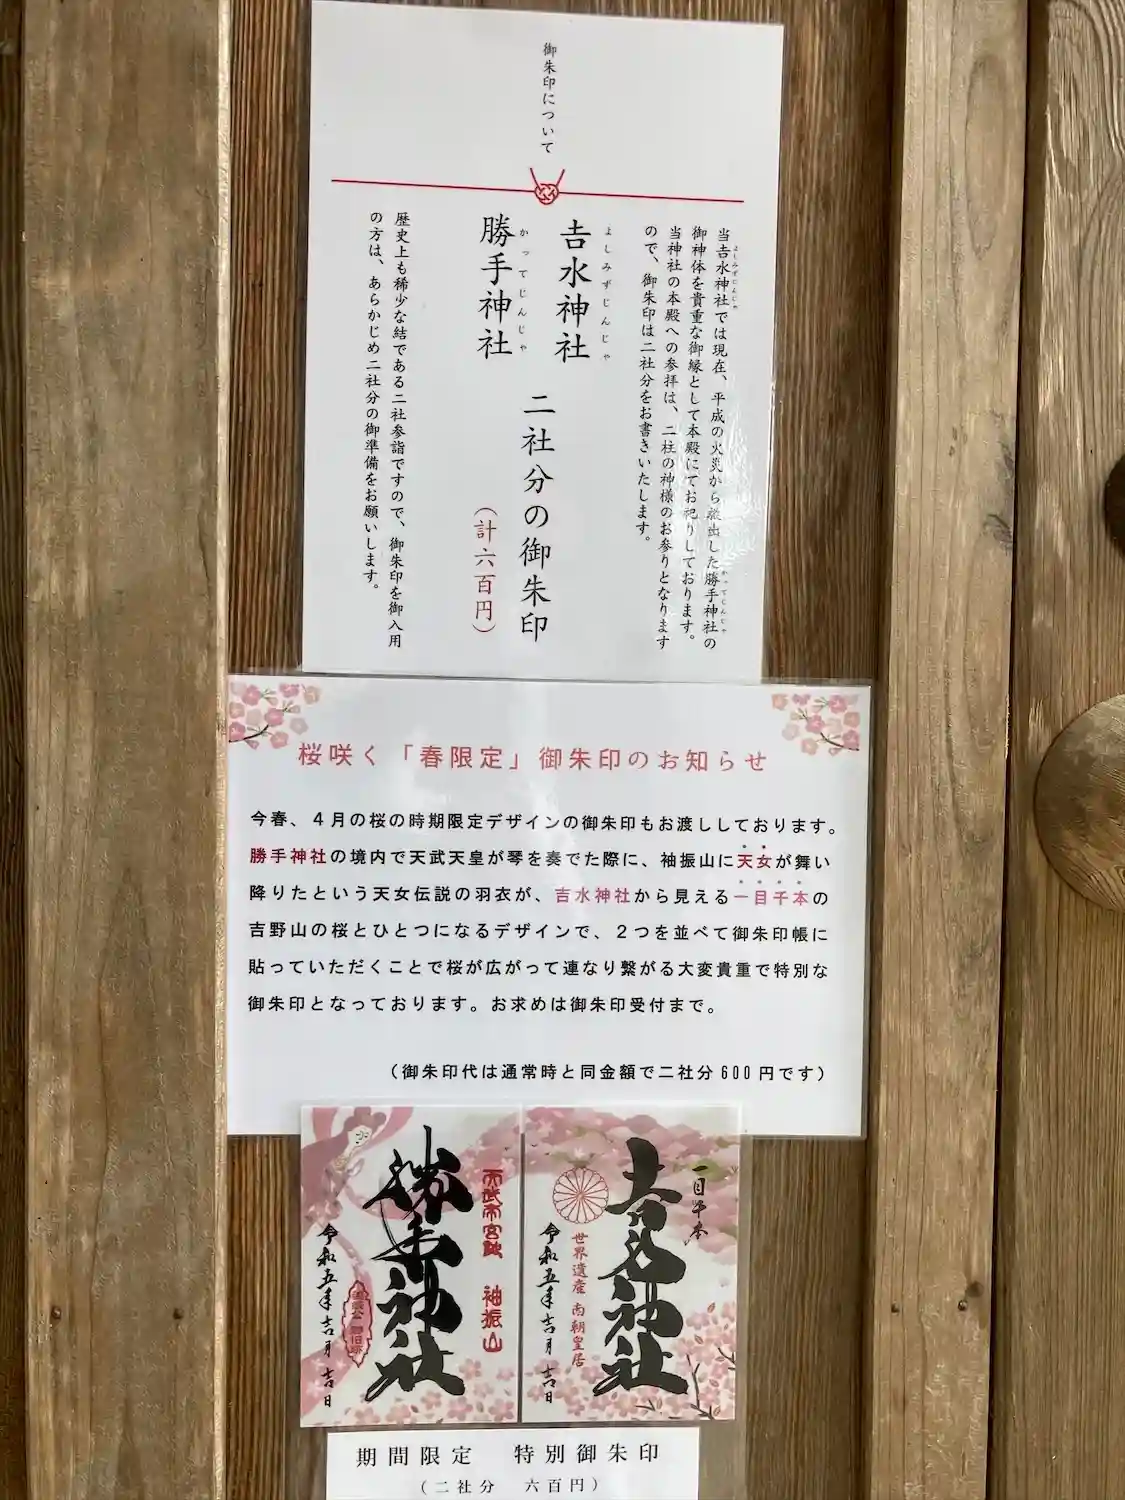 御朱印について
当𠮷水神社では現在、平成の火災から救出した勝手神社の
よしみずじんじゃ
かってじんじゃ
御神体を貴重な御縁として本殿にてお祀りしております。
当神社の本殿への参拝は、二柱の神様のお参りとなります
ので、御朱印は二社分をお書きいたします。
よしみずじんじゃ
𠮷水神社
かってじんじゃ
勝手神社
二社分の御朱印
(計六百円)
歴史上も稀少な結である二社参詣ですので、御朱印を御入用
の方は、あらかじめ二社分の御準備をお願いします。
桜咲く「春限定」御朱印のお知らせ
今春、4月の桜の時期限定デザインの御朱印もお渡ししております。
勝手神社の境内で天武天皇が琴を奏でた際に、袖振山に天女が舞い
降りたという天女伝説の羽衣が、吉水神社から見える一目千本の
吉野山の桜とひとつになるデザインで、2つを並べて御朱印帳に
貼っていただくことで桜が広がって連なり繋がる大変貴重で特別な
御朱印となっております。お求めは御朱印受付まで。
(御朱印代は通常時と同金額で二社分600円です)
一目千本
吉水神社
世界遺産 南朝皇居
令和五年吉月吉日
袖振山
勝手神社
令和五年吉月吉日
期間限定 特別御朱印
(二社分 六百円)